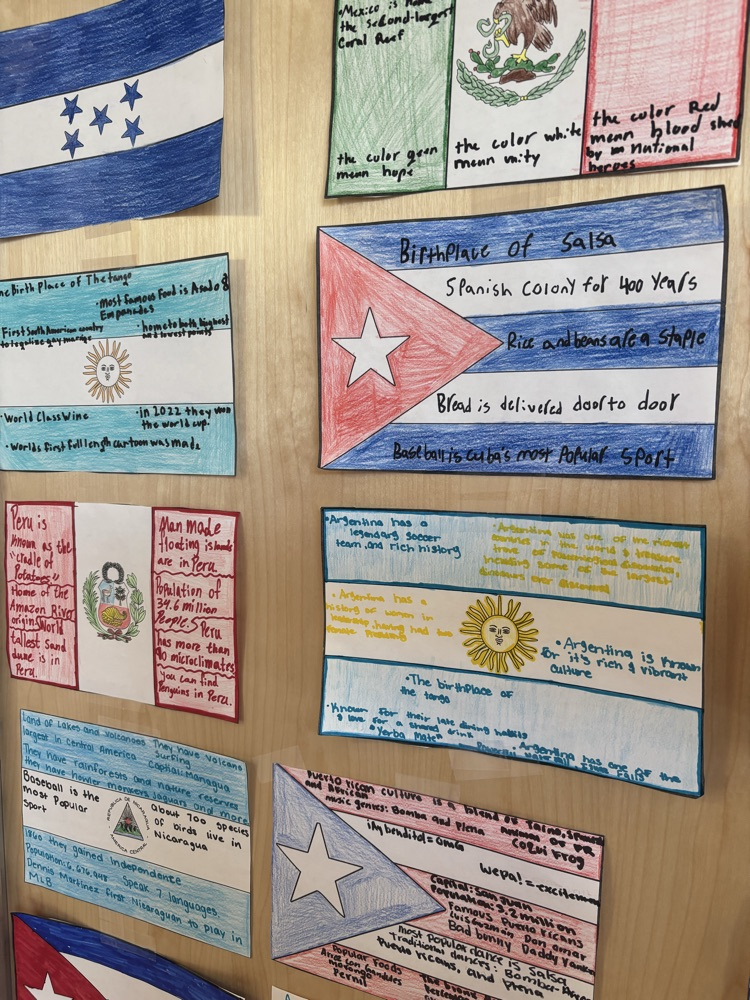 •Mexico is
the second-largest
Coral Reef
the color green
mean hope
the color white
mean unity
the color Red
mean blood shed
by national
heroes
Birthplace of Salsa
Spanish Colony for 400 Years
Rice and beans are a staple
Bread is delivered door to door
Baseball is Cuba's most Popular Sport
Birth Place of The tango
•most famous Food is Asado &
Empanadas
First South American country
to legalize gay marrige
•home to both highest
and lowest points
•World Class Wine
•in 2022 they won
the world cup.
•Worlds first full length cartoon was made
Peru is
Known as the
"cradle of
Potatoes"
Home of the
Amazon River
origins World
tallest Sand
dune is in
Peru.
Man made
floating islands
are in Peru.
Population of
34.6 million
People. Peru
has more than
microclimates
you can find
Penguins in Peru.
•Argentina has a
legendary soccer
team, and rich history
•Argentina has one of the richest
countries in the world & treasure
trove of
including some of the largest
dinosaurs ever discovered
•Argentina has a
history of women in
leadership, having had two
female
•Argentina is known
for it's rich & vibrant
culture
•The birthplace of
the tango
•Known for their late dining habits
& love for a shared drink
"Yerba Mate"
Argentina has one of the
Land of Lakes and Volcanoes They have Volcano
largest in central America Surfing
Captial: Managua
They have rainforests and nature reserves
they have howler monkeys Jaguars and more
Baseball is the
most Popular
Sport
REPUBLICA DE NICARAGUA
AMERICA CENTRAL
About 700 species
of birds live in
Nicaragua
1860 they gained independence
Population: 6,676,948 Speak 7 languages
Dennis Martinez first Nicaraguan to play in
MLB
Puerto rican culture is a blend of Taino, Spanish
and African
music genres: Bomba and Plena
COQUI Frog
¡Ay bendito! = OMG
Wepa! = excitement
Capital: San Juan
Population: 3.2 million
Famous Puerto ricans
Luis Guzman Don omar
Bad bunny Daddy Yankee
most Popular dance is Salsa
Traditional dances: Bomba
Puerto ricans, and Plena
Popular Foods
Arroz con gandules
mofongo
Pernil